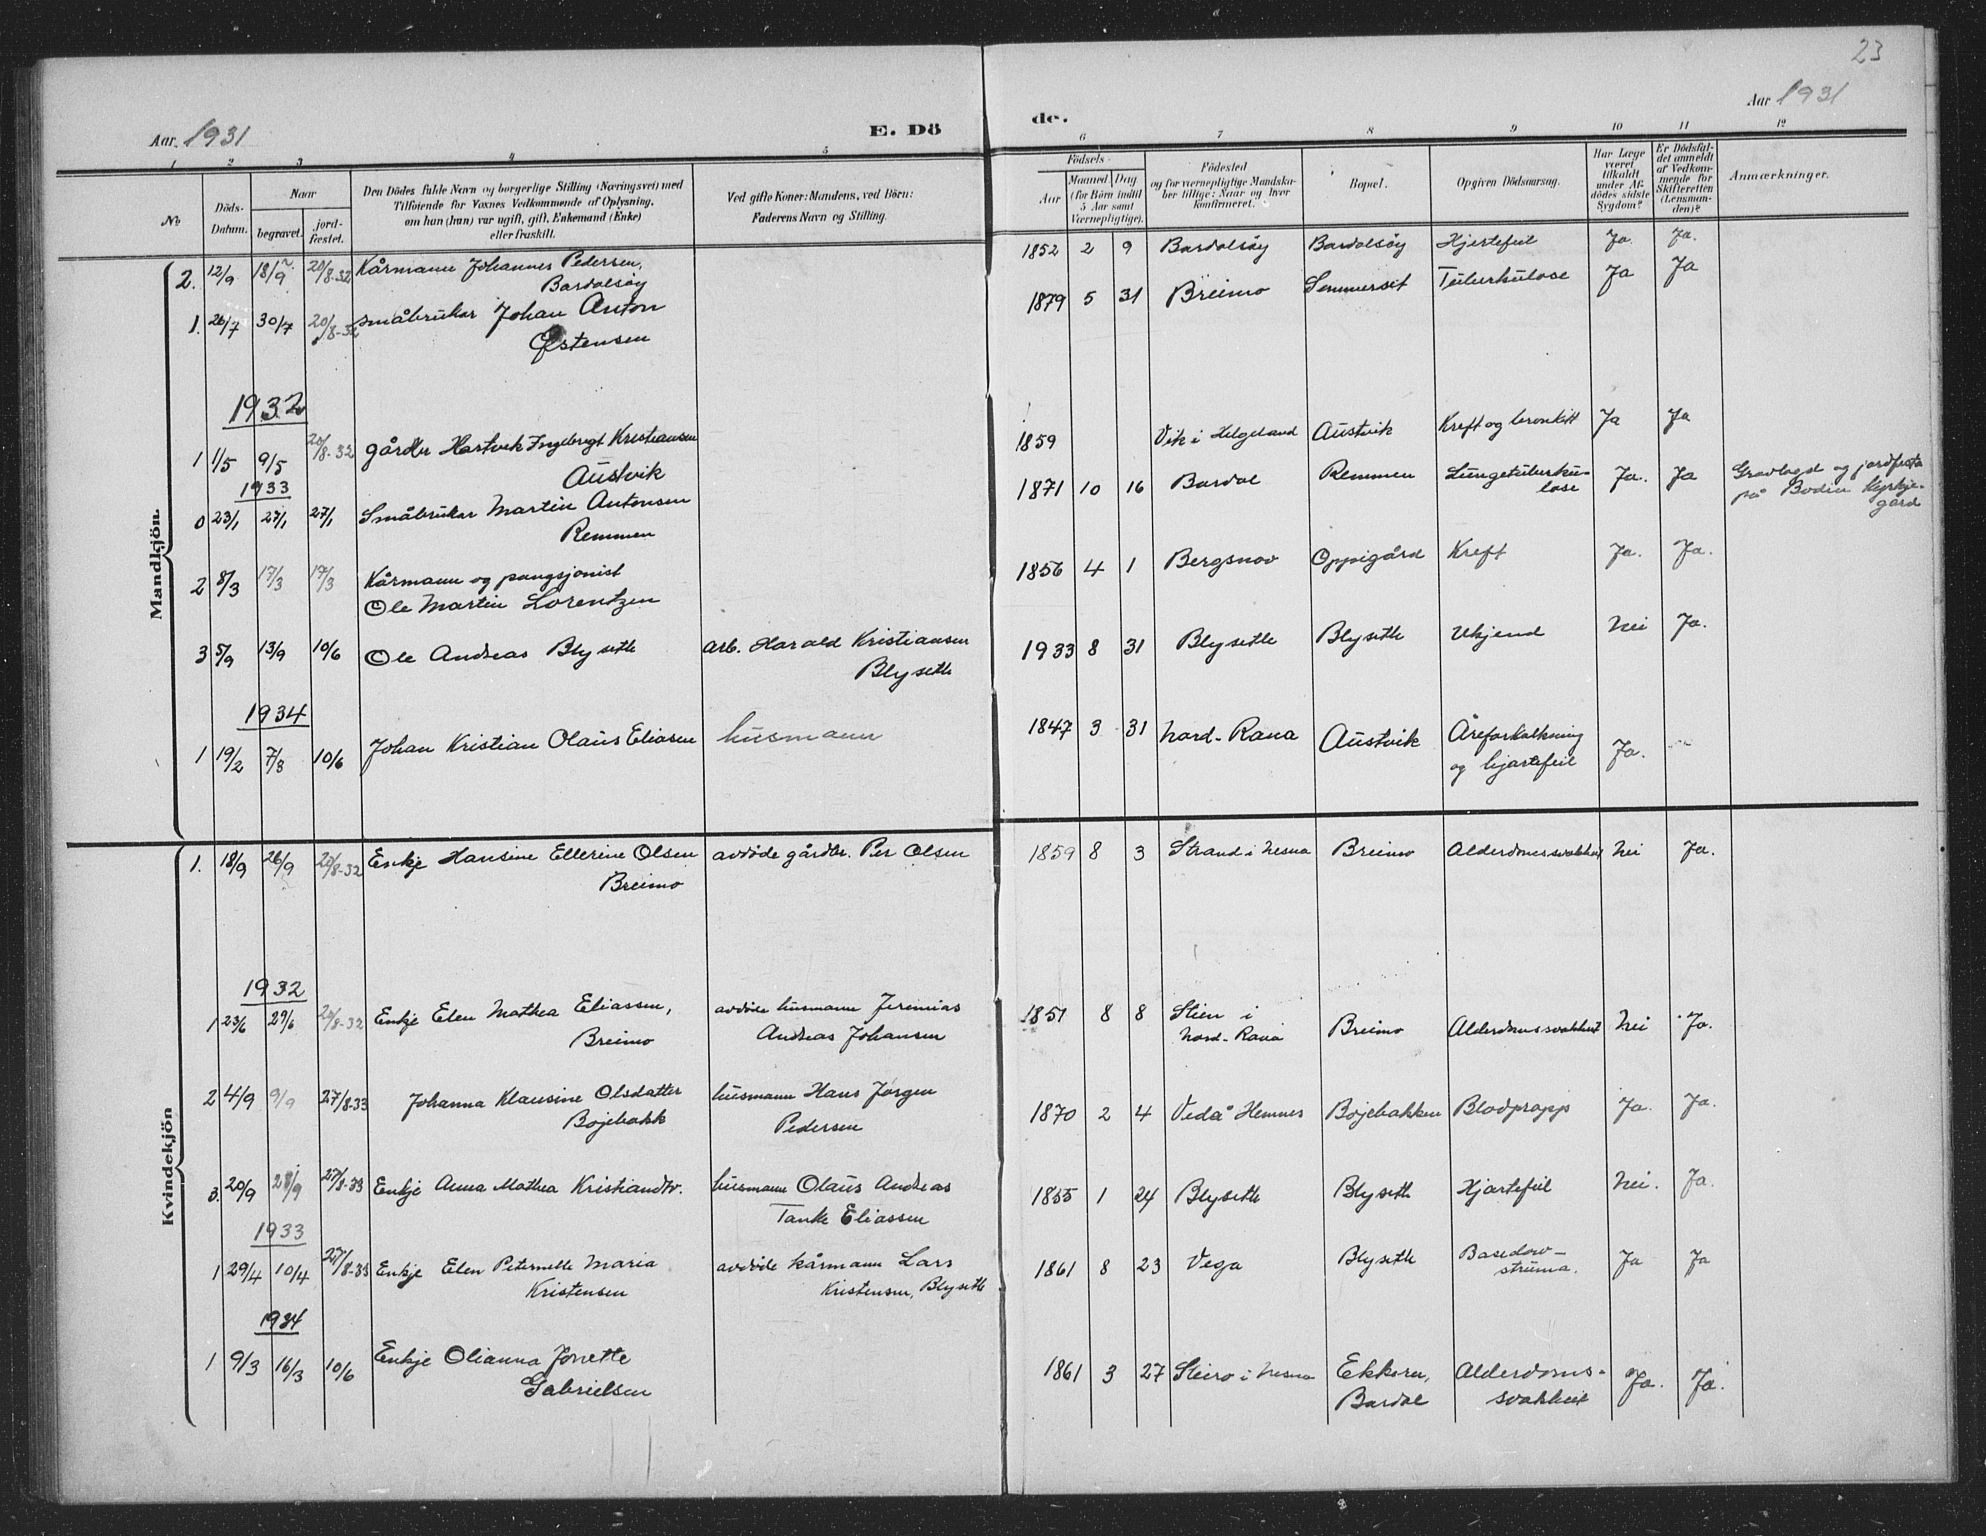 23
Aar. 1931 E. Dö
de. Aar 1931
1 2 3 4 5
6 7 8 9 10 11 12
No
Döds-Datum.
Naar
begravet.
jord-fæstet.
Den Dödes fulde Navn og borgerlige Stilling (Næringsvei) med
Tilföiende for Voxnes Vedkommende af Oplysning.
om han (hun) var ugift, gift, Enkemand (Enke)
eller fraskilt.
Ved gifte Koner: Mandens, ved Börn:
Faderens Navn og Stilling.
Födsels-
Aar
Maaned Dag
(for Börn indtil
5 Aar samt
Værnepligtige).
Födested
og for værnepligtige Mandska-
ber tillige: Naar og hvor
konfirmeret.
Bopæl.
Opgiven Dödsaarsag.
Har Læge
været
tilkaldt
under Af-
dödes sidste
Sygdom?
Er Dödsfal-
det anmeldt
af Vedkom-
mende for
Skifteretten
(Lensman-
den)?
Anmærkninger.
Mandkjön.
2. 12/9 18/9 20/8-32 Kårmann Johannes Pedersen, 1852 2 9 Bardalsøy Bardalsøy Hjertefeil Ja. Ja.
Bardalsøy
1. 26/7 30/7 20/8-32 småbruker Johan Anton 1879 5 31 Breimo Semmerset Tuberkulose Ja Ja
Østensen
1932
1 1/5 9/5 20/8-32 gårdbr Hartvik Ingebrigt Kristiansen 1859 Vik i Helgeland Austvik Kreft og bronkitt Ja Ja
Austvik
1933
0 23/1 27/1 27/1 Småbruker Martin Antonsen 1871 10 16 Bardal Remmen Lungetuberku- Ja. Ja Gravlagd og jordfesta
Remmen lose på Bodin Kyrkje-
gard
2 8/3 17/3 17/3 Kårmann og pangsjonist 1856 4 1 Bergsnov Oppigård Kreft Ja. Ja.
Ole Martin Lorentzen
3 5/9 13/9 10/6 Ole Andreas Blyseth arb. Harald Kristiansen 1933 8 31 Blyseth Blyseth Ukjend Nei Ja.
Blyseth
1934
1 19/2 7/3 10/6 Johan Kristian Olaus Eliasen husmann 1847 3 31 Nord-Rana Austvik Åreforkalkning Ja.
og hjartefeil
Kvindekjön
1. 18/9 26/9 20/8-32 Enkje Hansine Ellerine Olsen avdøde gårdbr. Per Olsen 1859 8 3 Strand i Nesna Breimo Alderdomssvakhet Nei Ja.
Breimo
1932
1 23/6 29/6 20/8-32 Enkje Elen Mathea Eliassen, avdøde husmann Jeremias 1851 8 8 Stien i Breimo Alderdomssvakheit Nei Ja.
Breimo Andreas Johansen Nord-Rana
2 4/9 9/9 27/8-33 Johanna Klausine Olsdatter husmann Hans Jørgen 1870 2 4 Vedå Hemnes Bøjebakken Blodpropp Ja. Ja.
Bøjebakk Pedersen
3. 20/9 28/9 27/8-33 Enkje Anna Mathea Kristiandtr. husmann Olaus Andreas 1855 1 24 Blyseth Blyseth Hjartefeil Nei. Ja.
Tanke Eliassen
1933
1 29/4 10/4 27/8-33 Enkje Elen Peternelle Maria avdøde kårmann Lars 1861 8 23 Vega Blyseth Basedow- Ja Ja
Kristensen Kristensen, Blyseth struma.
1934
1 9/3 16/3 10/6 Enkje Olianna Jonette 1861 3 27 Steiro i Nesna Ekkeren, Alderdoms- Ja. Ja.
Gabrielsen Bardal svakheit